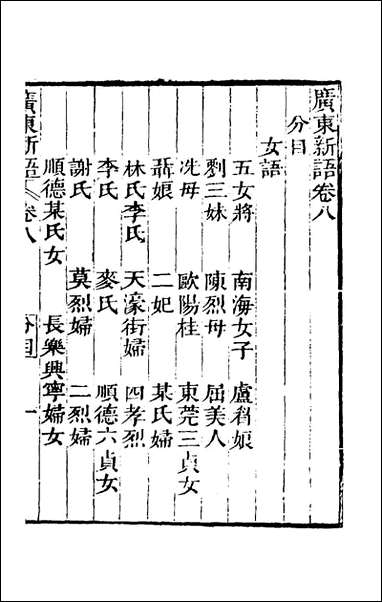 廣東新語卷八
分目
女語
五女將　南海女子　盧眉娘
劉三妹　陳烈母　屈美人
冼母　歐陽桂　東莞三貞女
聶娘　二妃　某氏婦
林氏李氏　天濠街婦　四孝烈
李氏　麥氏　順德六貞女
謝氏　莫烈婦　二烈婦
順德某氏女　長樂興寧婦女
廣東新語　卷八　分目　一